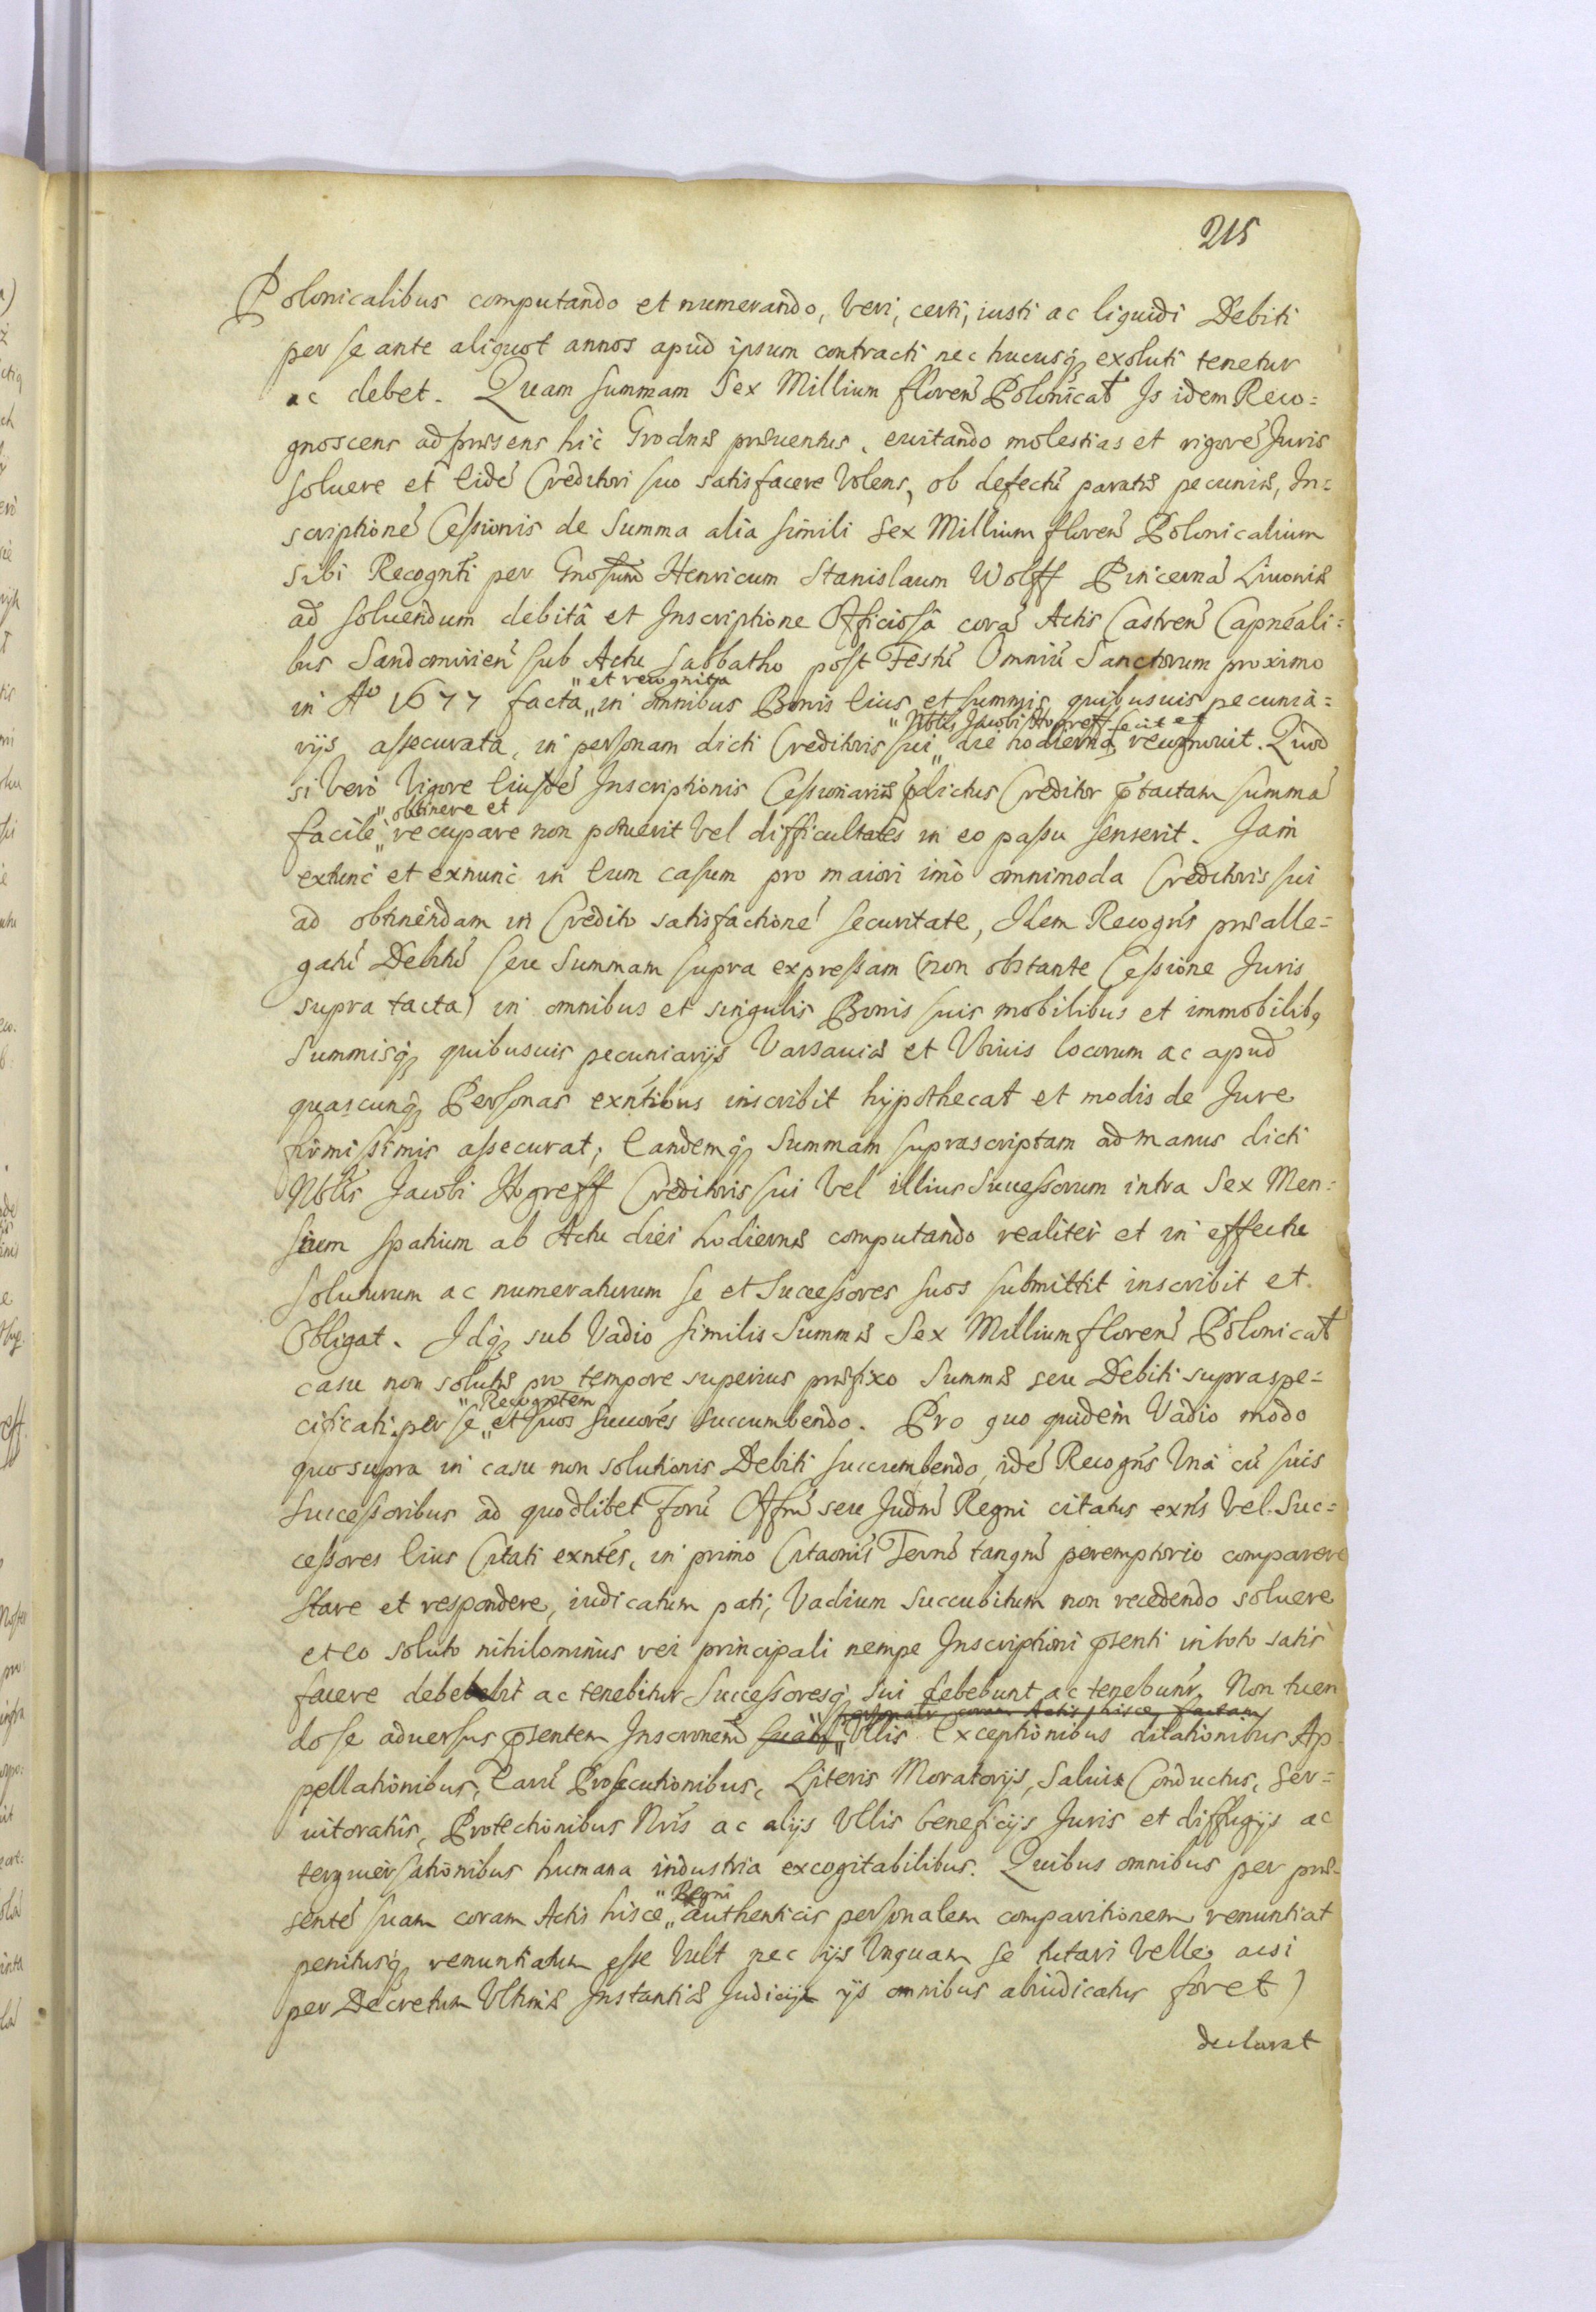 215
Polonicalibus computando et numerando, veri, certi, iusti ac liquidi Debiti
per se ante aliquot annos apud ipsum contracti nec hucusq; exoluti tenetur
ac debet. Quam summam Sex Millium floren Polonical Is idem Reco=
gnoscens ad præsens hic Grodnæ præventus, evitando molestias et rigore Juris
soluere et eide Creditori suo satisfacere volens, ob defectu paratæ pecuniæ, In=
scriptione Cessionis de Summa alia simili Sex Millium floren Polonicalium
sibi Recognti per Gnosum Henricum Stanislaum Wolff Pincerna Livoniæ
ad soluendum debitâ et Inscriptione Officiosâ cora Actis Castren Capneali=
bus Sandomirien sub Actu Sabbatho post Festu Omniu Sanctorum proximo
" et recognita
in Ao 1677 facta „ in omnibus Bonis eius et summis quibusuis pecunia=
" Nblis Jacobi Hogreff
rijs assecurata, in personam dicti Creditoris sui „ die hodierna recognovit. Quod
si vero vigore eiusde Inscriptionis Cessionariæ pdictus Creditor ptactam summa
" obtinere et
facile „ recupare non potuerit vel difficultates in eo passu senserit. Jam
extunc et exnunc in eum casum pro maiori imo omnimoda Creditoris sui
ad obtinendam in Credito satisfactione securitate, Idem Recogns præalle=
gatu Debitu seu Summam supra expressam (non obstante Cessione Juris
supra tacta) in omnibus et singulis Bonis suis mobilibus et immobilib,
Summisq; quibusuis pecuniarijs Varsaviæ et Vbivis locorum ac apud
quascunq; Personas exntibus inscribit hypothecat et modis de Jure
firmissimis assecurat; Eandemq; Summam suprascriptam ad manus dicti
Nblis Jacobi Hogreff Creditoris sui vel illius Successorum intra Sex Men=
sium spatium ab Actu diei hodiernæ computando realiter et in effectu
soluturum ac numeraturum se et Successores suos submittit inscribit et
Obligat. Idq; sub Vadio similis Summæ Sex Millium floren Polonical
casu non solutæ pro tempore superius præfixo Summæ seu Debiti supraspe=
" Recogntem
cificati per se „ et suos succores succumbendo. Pro quo quidem Vadio modo
quo supra in casu non solutionis Debiti succumbendo, ide Recogns Vna cu suis
Successoribus ad quodlibet foru Offm seu Judm Regni citatus exns vel Suc=
cessores eius Citati exntes, in primo Citaonis Termo tanqm peremptorio comparere
stare et respondere, iudicatum pati, Vadium succubitum non recedendo soluere
et eo soluto nihilominus rei principali nempe Inscriptioni psenti in toto satis
facere debebit ac tenebitur Successoresq; sui debebunt ac tenebunr. Non tuen
personalr coram Actis hisce factam
do se adversus psentem Inscronem suam „ Vllis Exceptionibus dilationibus Ap
pellationibus, Earu Prosecutionibus, Literis Moratorijs, Salvis Conductus, Ser=
vitoratus, Protectionibus Nris ac alijs Vllis beneficijs Juris et diffugijs ac
tergiversationibus humana industria excogitabilibus. Quibus omnibus per præ=
" Regni
sente suam coram Actis hisce „ authenticis personalem comparitionem renuntiat
penitusq; renuntiatum esse vult nec ijs Vnquam se tutari velle, acsi
per Decretum Vltimæ Instantiæ Judicij ijs omnibus abiudicatus foret)
declarat